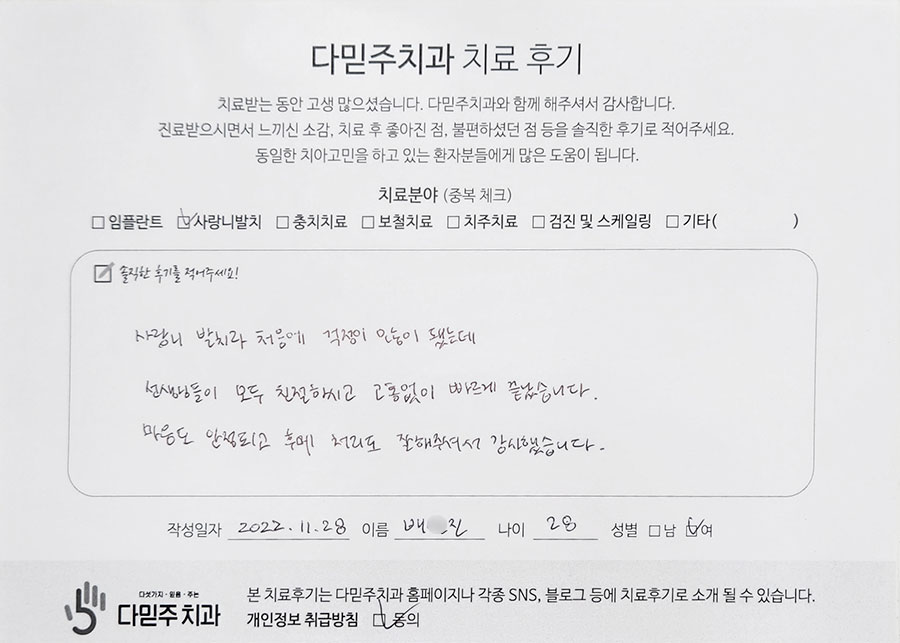 다믿주치과 치료 후기
치료받는 동안 고생 많으셨습니다. 다믿주치과와 함께 해주셔서 감사합니다.
진료받으시면서 느끼신 소감, 치료 후 좋아진 점, 불편하셨던 점 등을 솔직한 후기로 적어주세요.
동일한 치아고민을 하고 있는 환자분들에게 많은 도움이 됩니다.
치료분야 (중복 체크)
□ 임플란트 ☑ 사랑니발치 □ 충치치료 □ 보철치료 □ 치주치료 □ 검진 및 스케일링 □ 기타( )
솔직한 후기를 적어주세요!
사랑니 발치라 처음에 걱정이 많이 됐는데
선생님들이 모두 친절하시고 고통없이 빠르게 끝났습니다.
마음도 안정되고 후에 처리도 잘해주셔서 감사했습니다.
작성일자 2022.11.28 이름 배 진 나이 28 성별 □남 ☑여
다섯가지·믿음·주는
다믿주치과
본 치료후기는 다믿주치과 홈페이지나 각종 SNS, 블로그 등에 치료후기로 소개 될 수 있습니다.
개인정보 취급방침 ☑ 동의